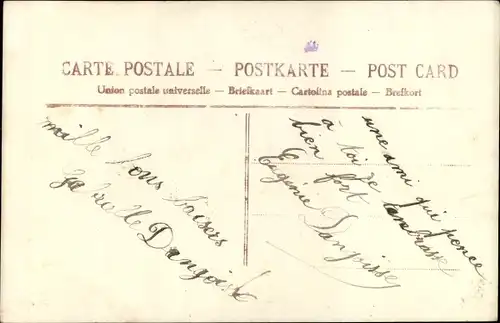 CARTE POSTALE — POSTKARTE — POST CARD
Union postale universelle — Briefkaart — Cartolina postale — Brefkort
mille bons baisers
Gabrielle Dangoisse
une ami qui pence
à toi de
bien fort tembrasse
Eugénie Danjoisse